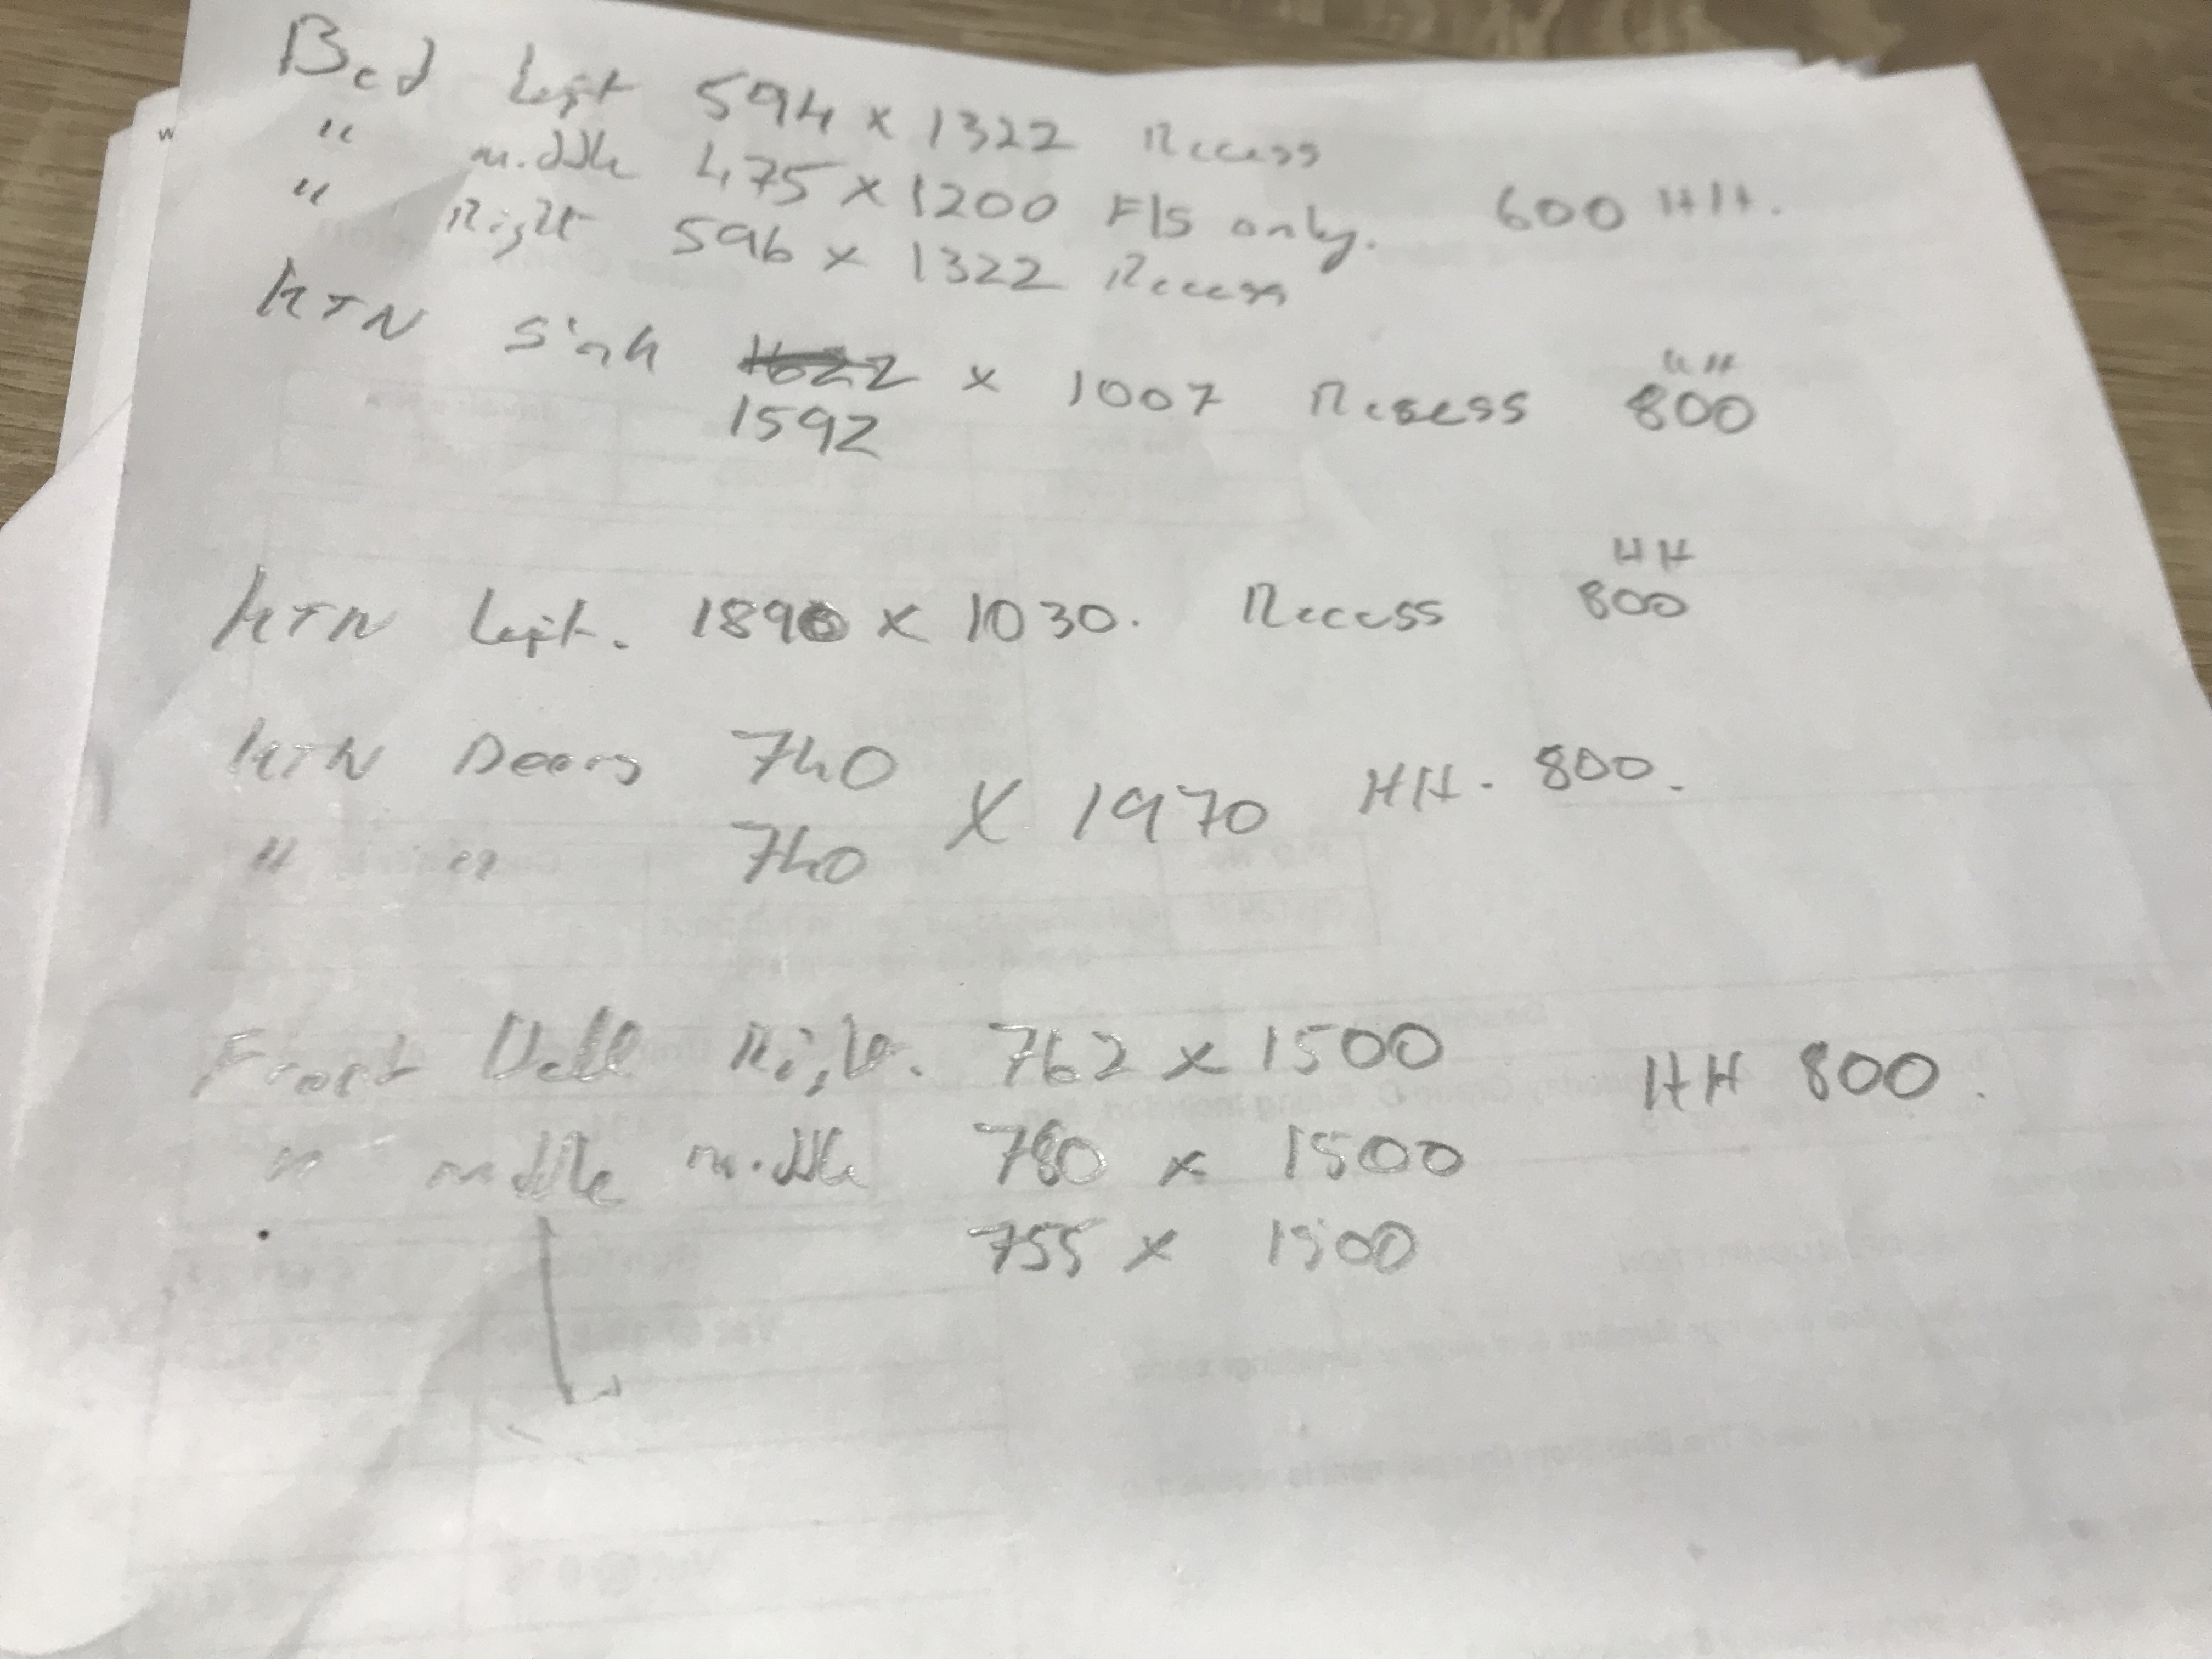 Bed Left 594 x 1322 Recess
" middle 475 x 1200 F/S only. 600 HH.
" Right 596 x 1322 Recess
KTN Sink 1622 x 1007 Recess HH 800
1592
KTN Left. 1890 x 1030. Recess HH 800
KTN Doors 740
x 1970 HH. 800.
" " 740
Front Right. 762 x 1500 HH 800.
" middle middle 780 x 1500
755 x 1500